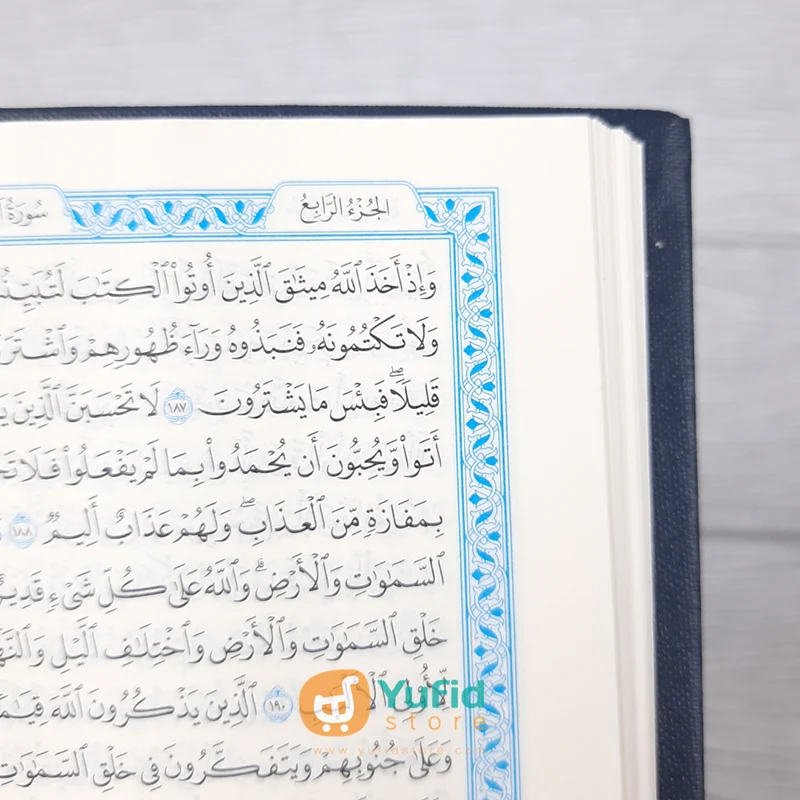 الجُزْءُ الرَّابِعُ
سُورَةُ
وَإِذْ أَخَذَ ٱللَّهُ مِيثَٰقَ ٱلَّذِينَ أُوتُوا۟ ٱلْكِتَٰبَ
وَلَا تَكْتُمُونَهُۥ فَنَبَذُوهُ وَرَآءَ ظُهُورِهِمْ
قَلِيلًا ۖ فَبِئْسَ مَا يَشْتَرُونَ ١٨٧ لَا تَحْسَبَنَّ ٱلَّذِينَ
أَتَوا۟ وَّيُحِبُّونَ أَن يُحْمَدُوا۟ بِمَا لَمْ يَفْعَلُوا۟
بِمَفَازَةٍ مِّنَ ٱلْعَذَابِ ۖ وَلَهُمْ عَذَابٌ أَلِيمٌ ١٨٨
ٱلسَّمَٰوَٰتِ وَٱلْأَرْضِ ۗ وَٱللَّهُ عَلَىٰ كُلِّ شَىْءٍ قَدِيرٌ
خَلْقِ ٱلسَّمَٰوَٰتِ وَٱلْأَرْضِ وَٱخْتِلَٰفِ ٱلَّيْلِ
١٩٠ ٱلَّذِينَ يَذْكُرُونَ ٱللَّهَ
وَعَلَىٰ جُنُوبِهِمْ وَيَتَفَكَّرُونَ فِى خَلْقِ ٱلسَّمَٰوَٰتِ
Yufid
store